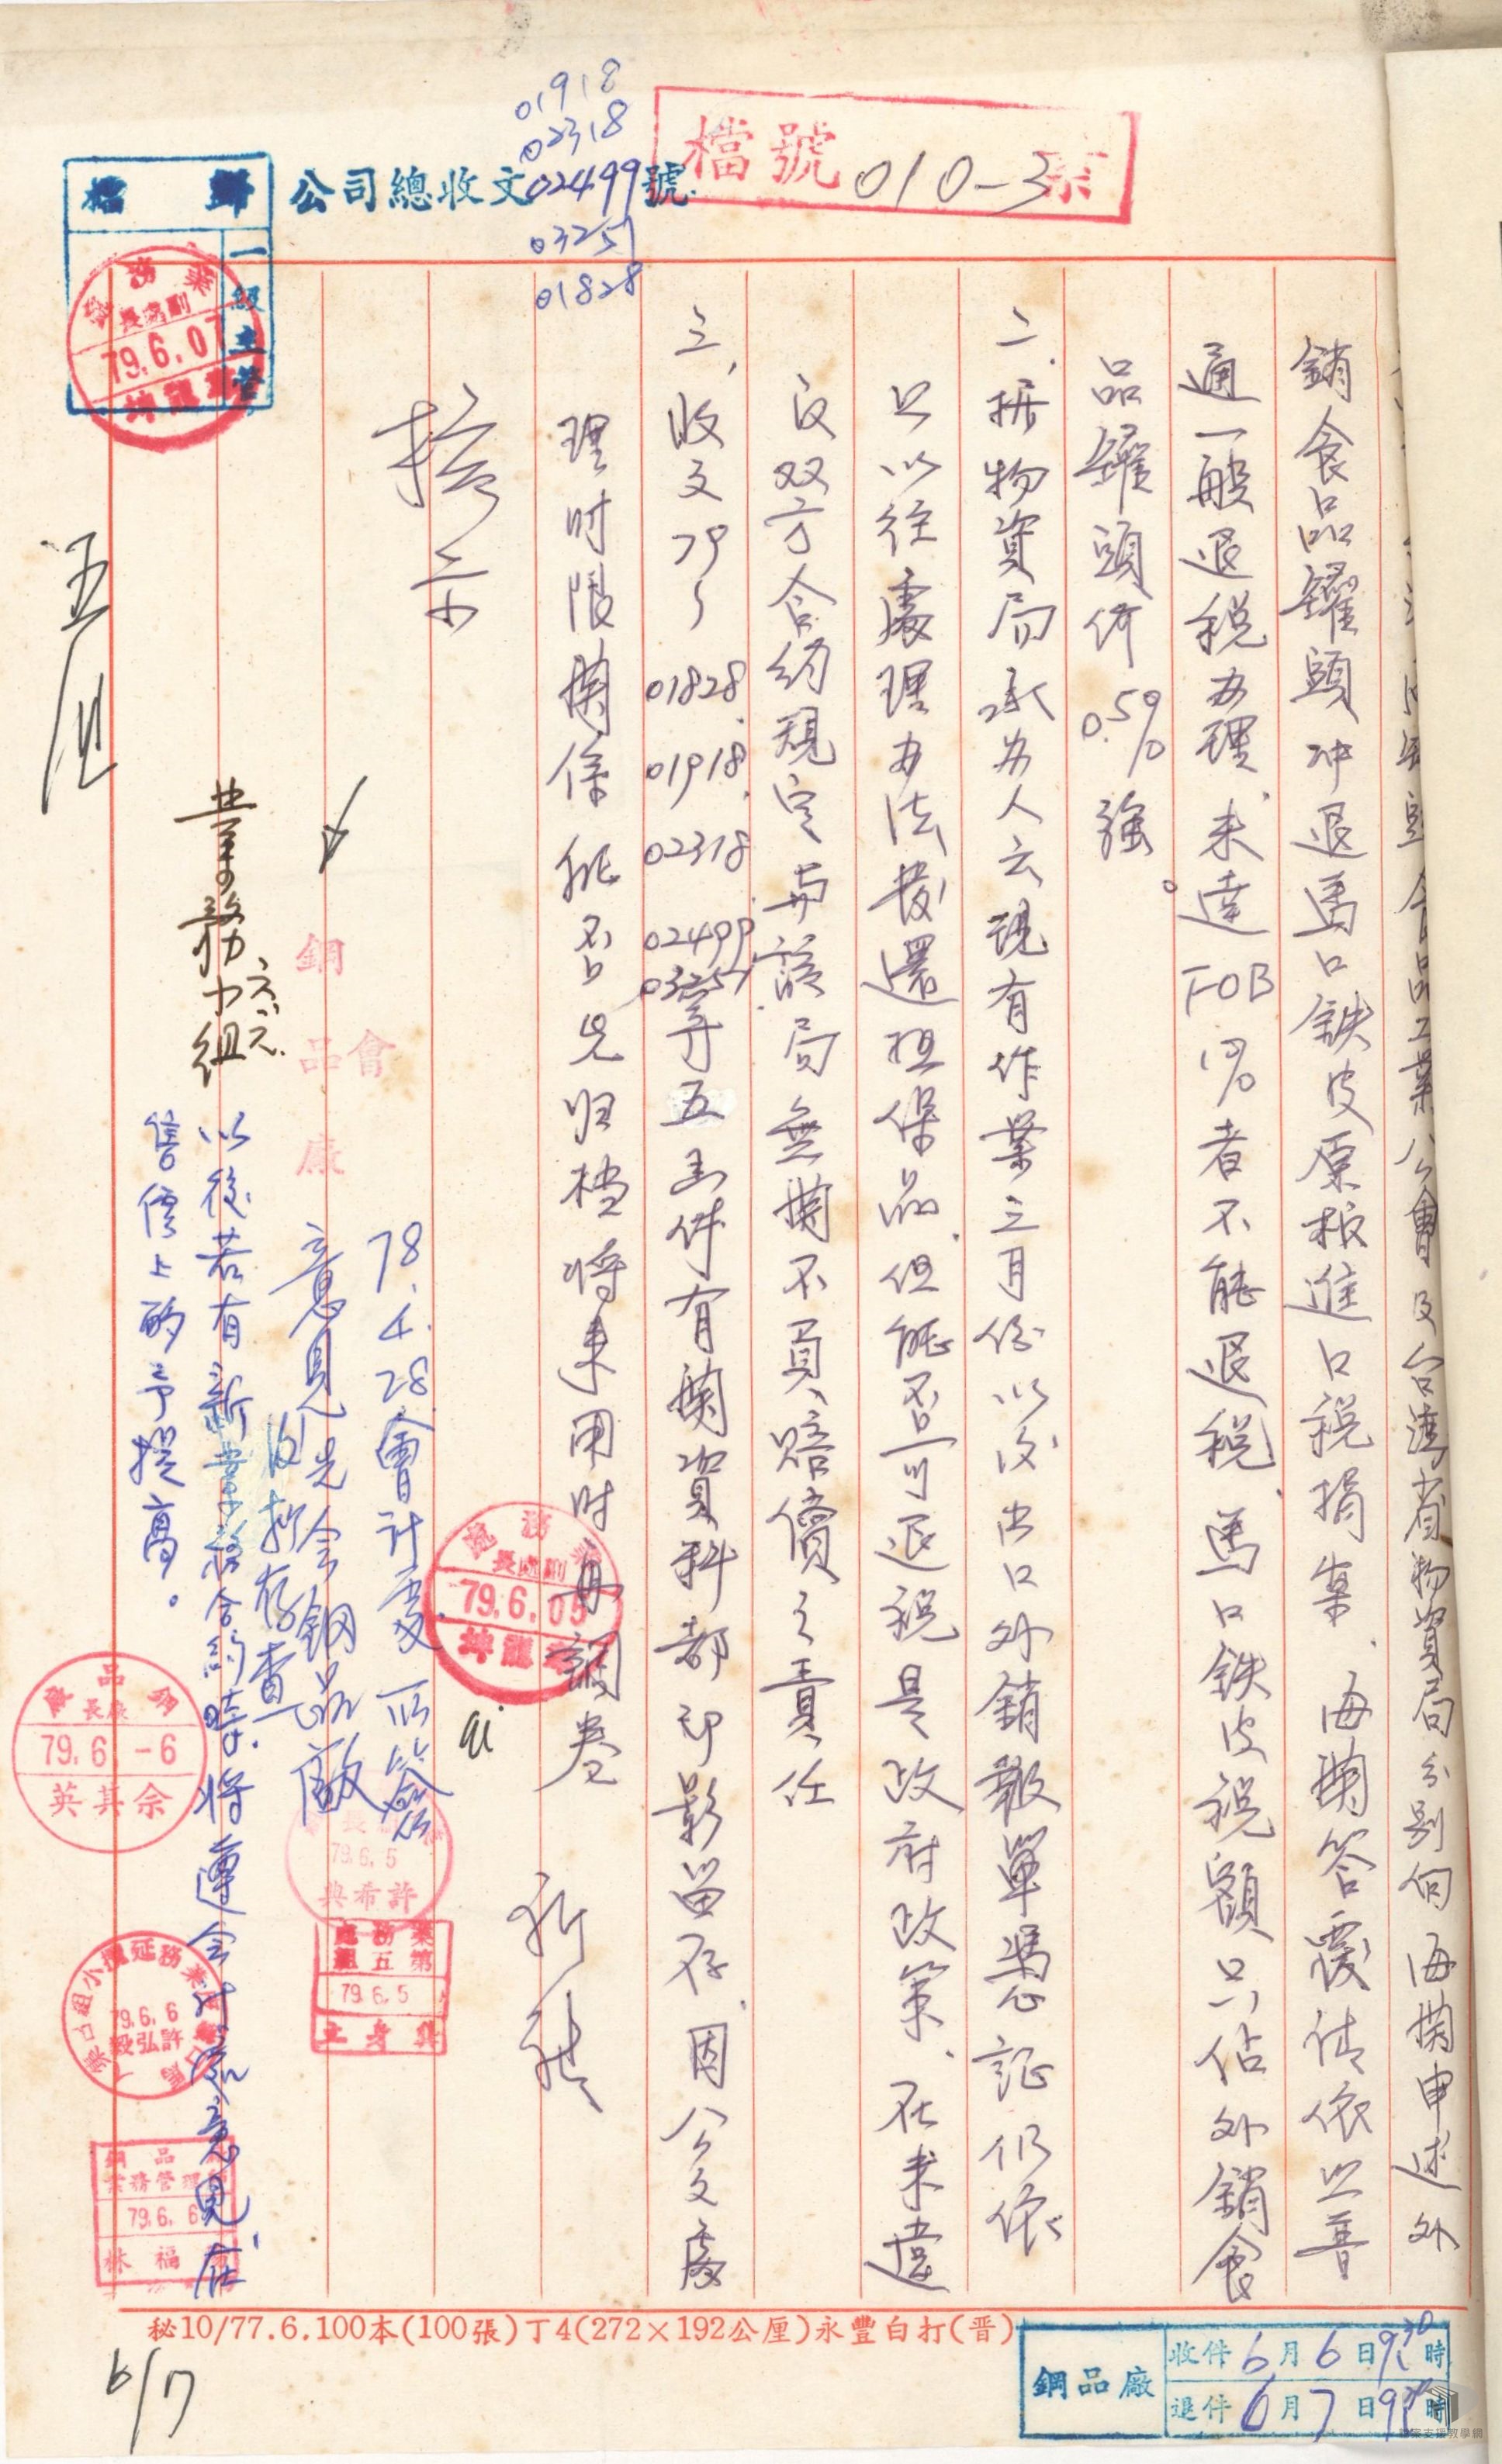 01918
02318
公司總收文02499號
03257
01828
檔號 010-3
歸檔
一級主管
業務處
副處長
79.6.07
食品工業公會及台灣省物資局分別向海関申述外
銷食品罐頭冲退馬口鉄皮原板進口税捐案、海関答覆請依照普
通一般退税办理、未達FOB 1%者不能退税、馬口鉄皮税額只佔外銷食
品罐頭价0.5%強。
二、据物資局承办人云現有作業三月份以後出口外銷報單憑証仍依
照以往處理办法發還担保品、但能否可退税是政府政策、在未違
反双方合約規定与該局無関不負賠償之責任
三、收文79、01828、01918、02318、02499、03257等五函件有関資料都已影留存、因公文處
理时限関係能否先归档将来用时再調卷
擬示
職
業務處
副處長
79.6.05
78.4.28會計處所簽
意見先会鋼品廠
後存查
會
鋼品廠
以後若有新業務合約時、将遵会計處意見、在
售價上酌予提高。
業務小組
鋼品廠
廠長
79.6.-6
余其英
79.6.5
許希典
業務處
第五組
79.6.5
79.6.6
許弘毅
鋼品廠
業務管理
79.6.6
林福
6/7
秘10/77.6.100本(100張)丁4(272×192公厘)永豐白打(晋)
鋼品廠
收件6月6日9 30時
退件6月7日9 時
檔案支援教學網